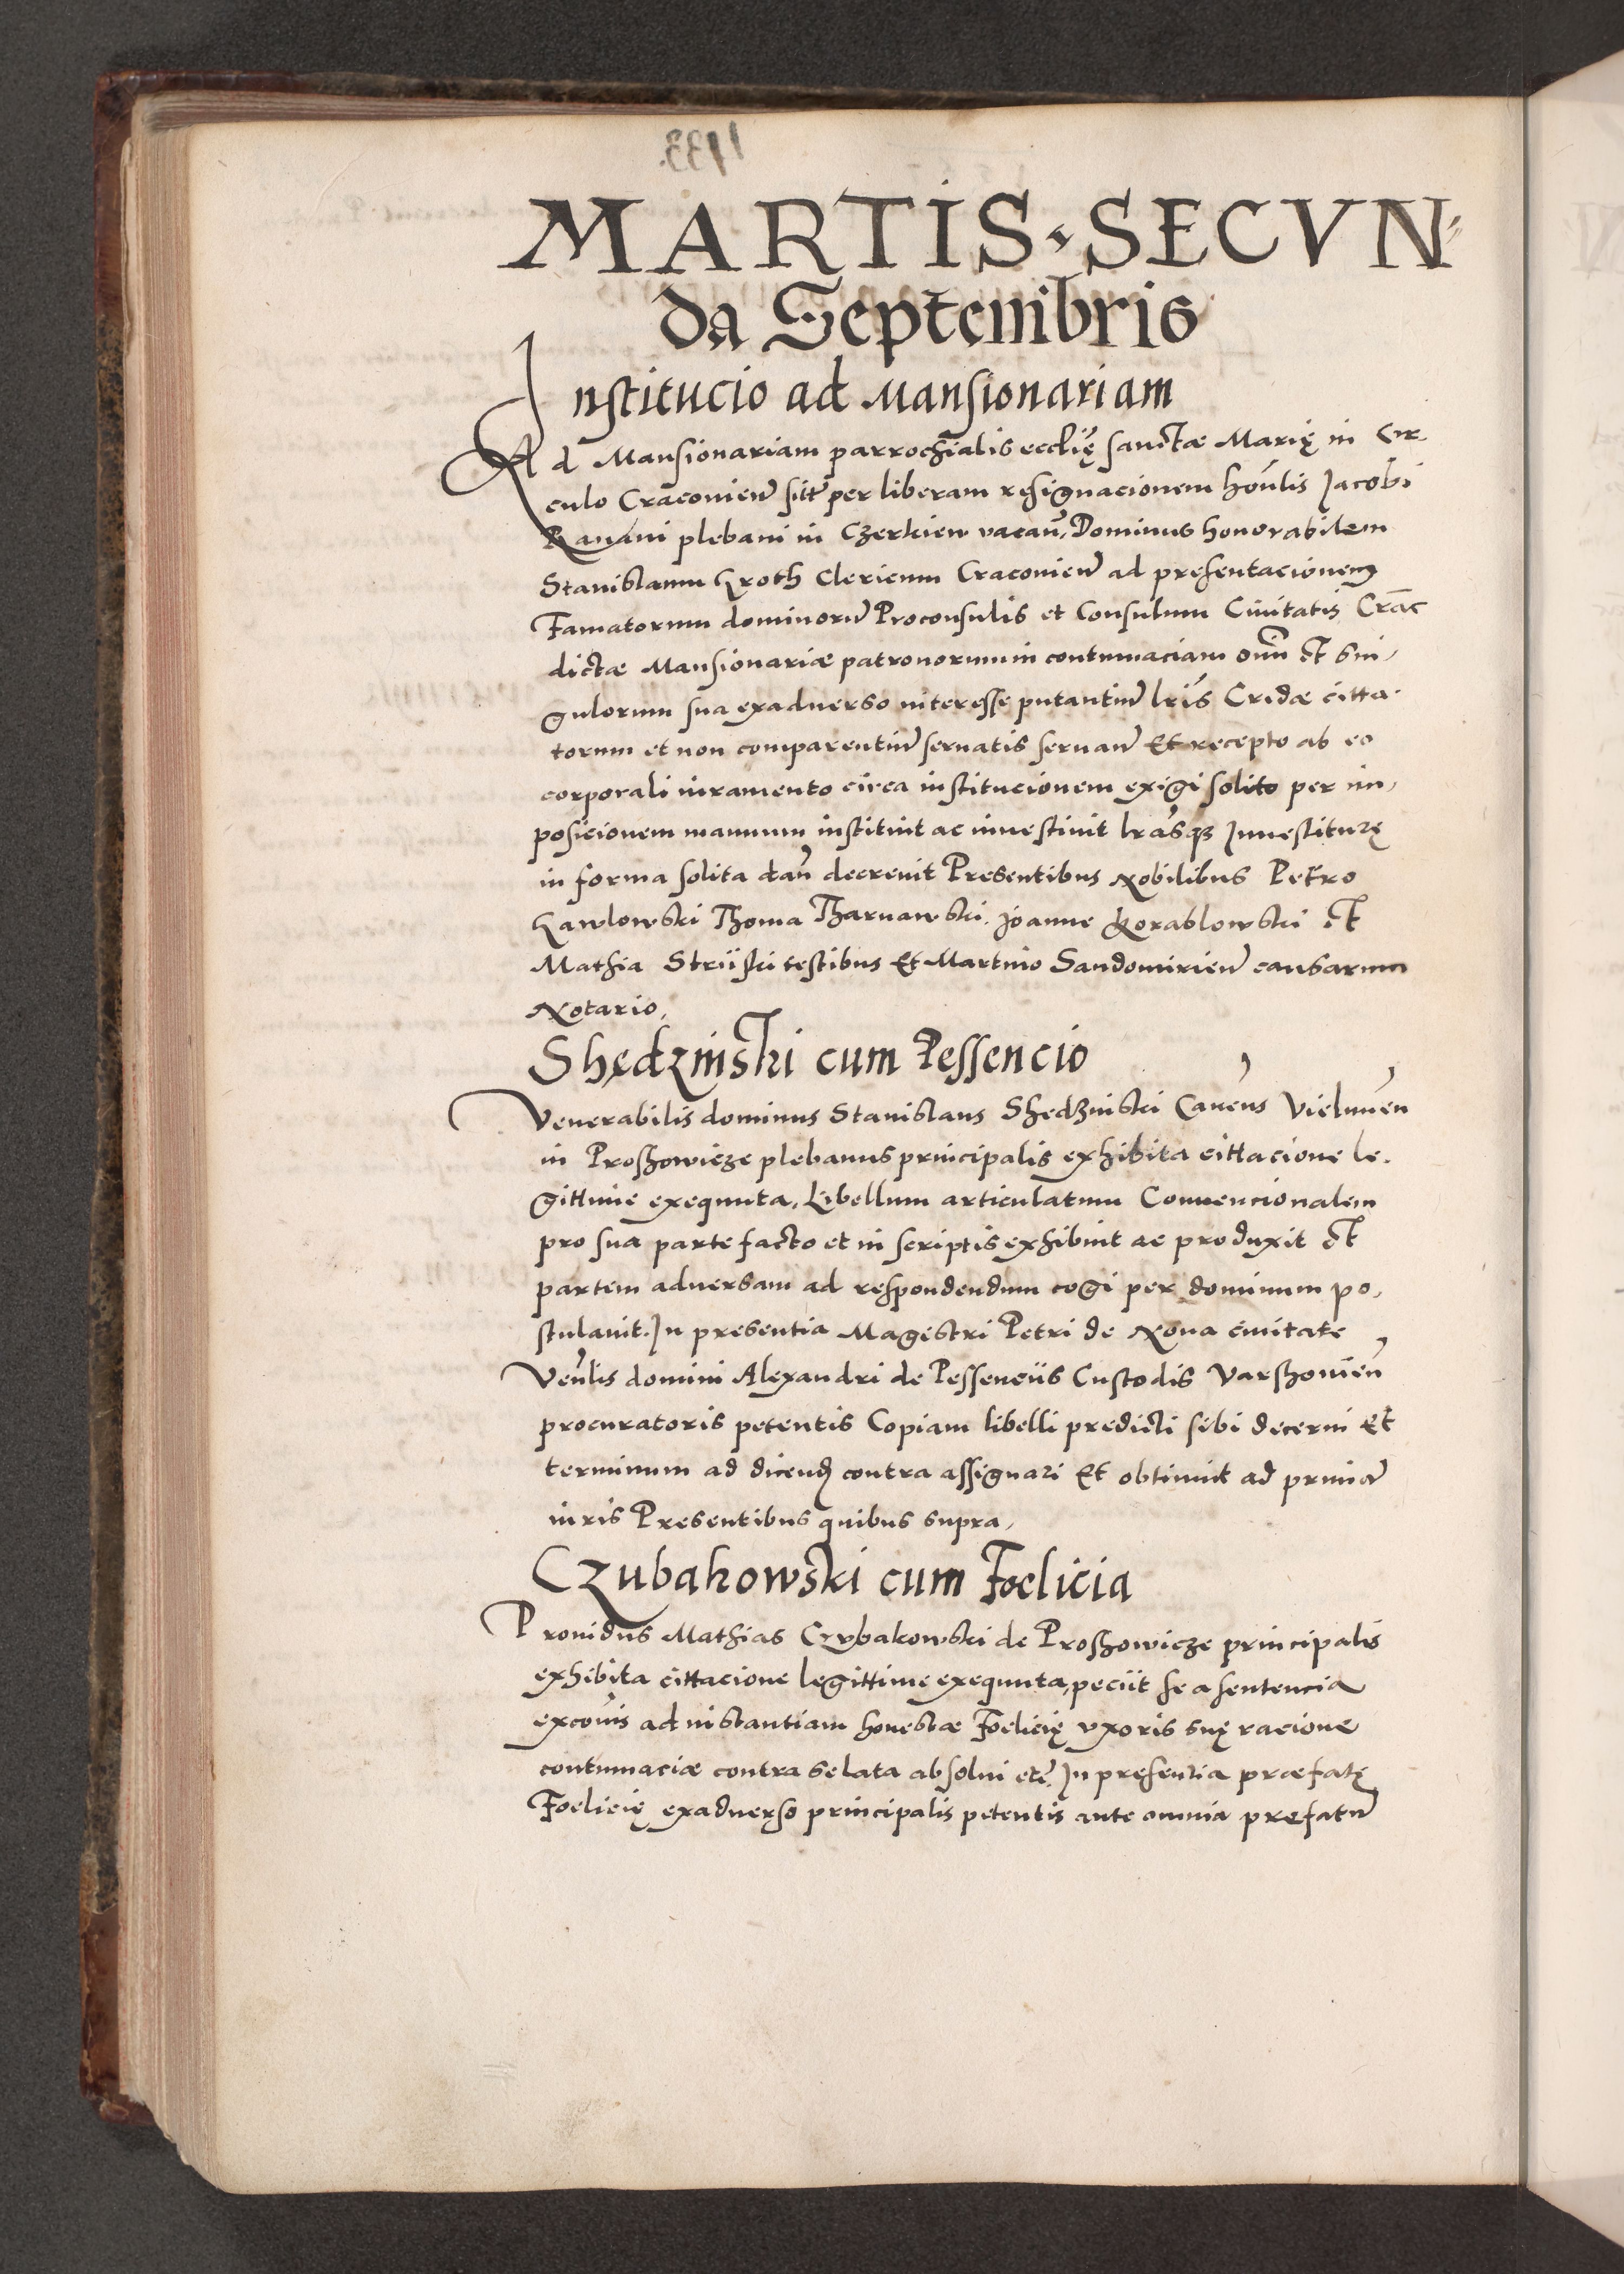 MARTIS SECVN
da Septembris
Institucio ad Mansionariam
Ad Mansionariam parrochialis ecclię sanctæ Marię in Cir-
culo Cracovien sitt per liberam resignacionem honlis Jacobi
plebani in Czerkiew vacan, Dominus honorabilem
Stanislaum Kroth Clericum Cracovien ad presentacionem
Famatorum dominoru Proconsulis et Consulum Civitatis Crac
dictæ Mansionariæ patronorum in contumaciam omn et sin-
gulorum sua exadverso interesse putantiu lris Cridæ citta-
torum et non comparentiu servatis servan Et recepto ab eo
corporali iuramento circa institucionem exigi solito per im-
posicionem manuum instituit ac investivit lrasq Investiturę
in forma solita dan decrevit Presentibus Nobilibus Petro
Gawlowski Thoma Tharnawski Joanne Korablowski et
Mathia testibus Et Martino Sandomirien causarum
Notario,
Shedzinski cum Pessencio
Venerabilis dominus Stanislaus Shedzinski Canens Vielunen
in Proszowicze plebanus principalis exhibita cittacione le-
gittime exequuta, Libellum articulatum Convencionalem
pro sua parte facto et in scriptis exhibuit ac produxit et
partem adversam ad respondendum cogi per dominum po-
stulavit. In presentia Magistri Petri de Nova civitate
Venlis domini Alexandri de Pessenciis Custodis Varschovien
procuratoris petentis Copiam libelli predicti sibi decerni et
terminum ad dicend contra assignari Et obtinuit ad prima
iuris Presentibus quibus supra,
Czubakowski cum Foelicia
Providus Mathias Czubakowski de Proszowicze principalis
exhibita cittacione legittime exequuta, peciit se a sentencia
excois ad instantiam honestæ Foelicię uxoris suę racione
contumaciæ contra se lata absolvi etc In presentia præfatę
Foelicię exadverso principalis petentis ante omnia prefatu